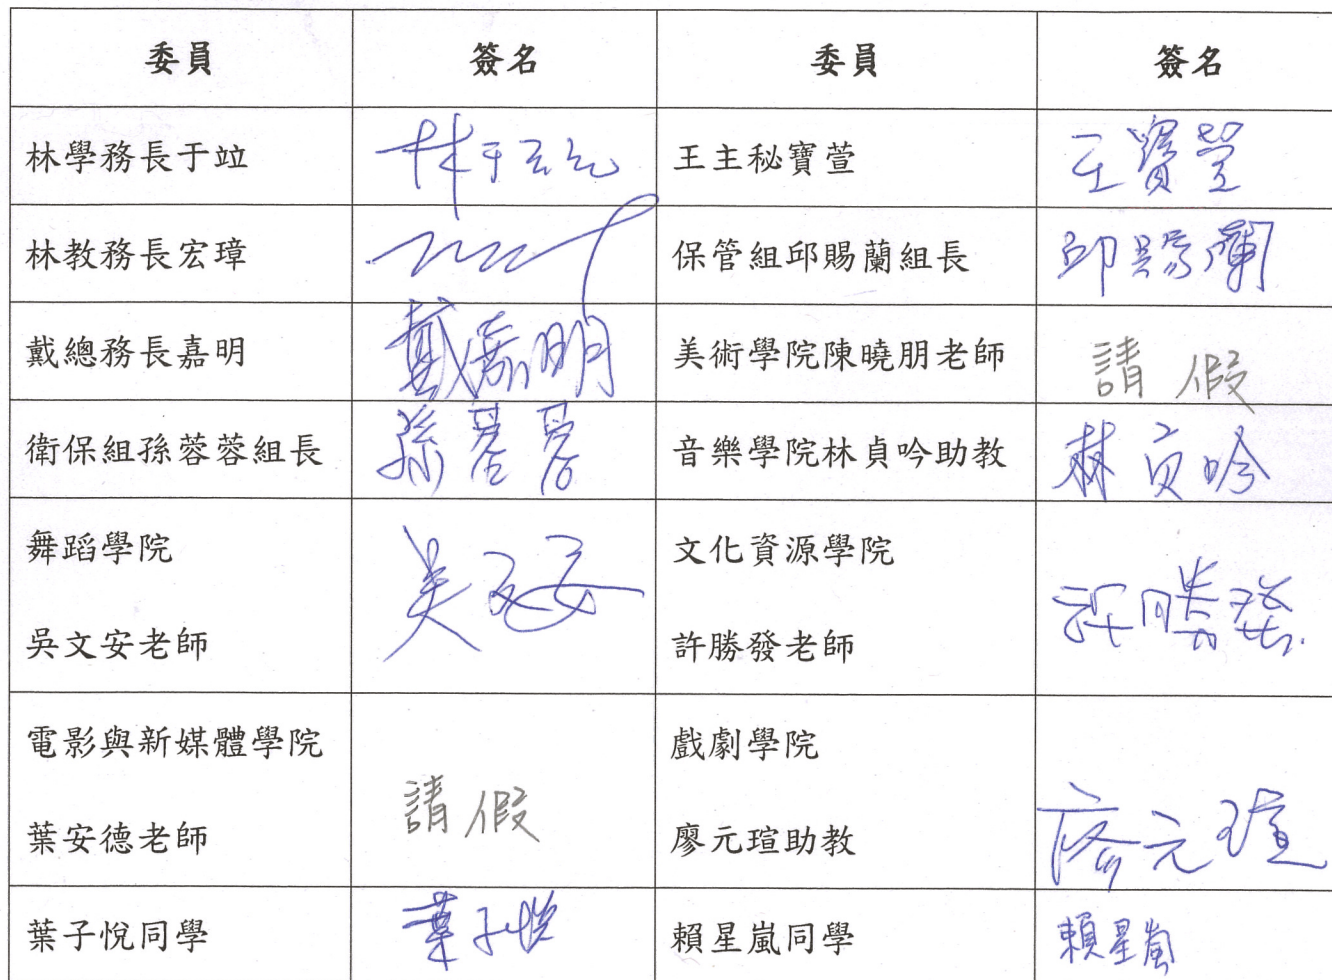 委員 簽名 委員 簽名
林學務長于竝 林于竝 王主秘寶萱 王寶萱
林教務長宏璋 保管組邱賜蘭組長 邱賜蘭
戴總務長嘉明 戴嘉明 美術學院陳曉朋老師 請假
衛保組孫蓉蓉組長 孫蓉蓉 音樂學院林貞吟助教 林貞吟
舞蹈學院 文化資源學院
吳文安老師 吳文安 許勝發老師 許勝發
電影與新媒體學院 戲劇學院
葉安德老師 請假 廖元瑄助教 廖元瑄
葉子悅同學 葉子悅 賴星嵐同學 賴星嵐